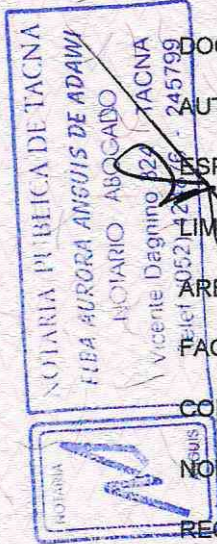 NOTARIA PUBLICA DE TACNA
ELBA AURORA ANGUIS DE ADAWI
NOTARIO ABOGADO
Vicente Dagnino 824 TACNA
(052) 245799
NOTARIA
ANGUIS
DO
AUT
ESP
LIM
ARE
FAC
CO
NO
REA